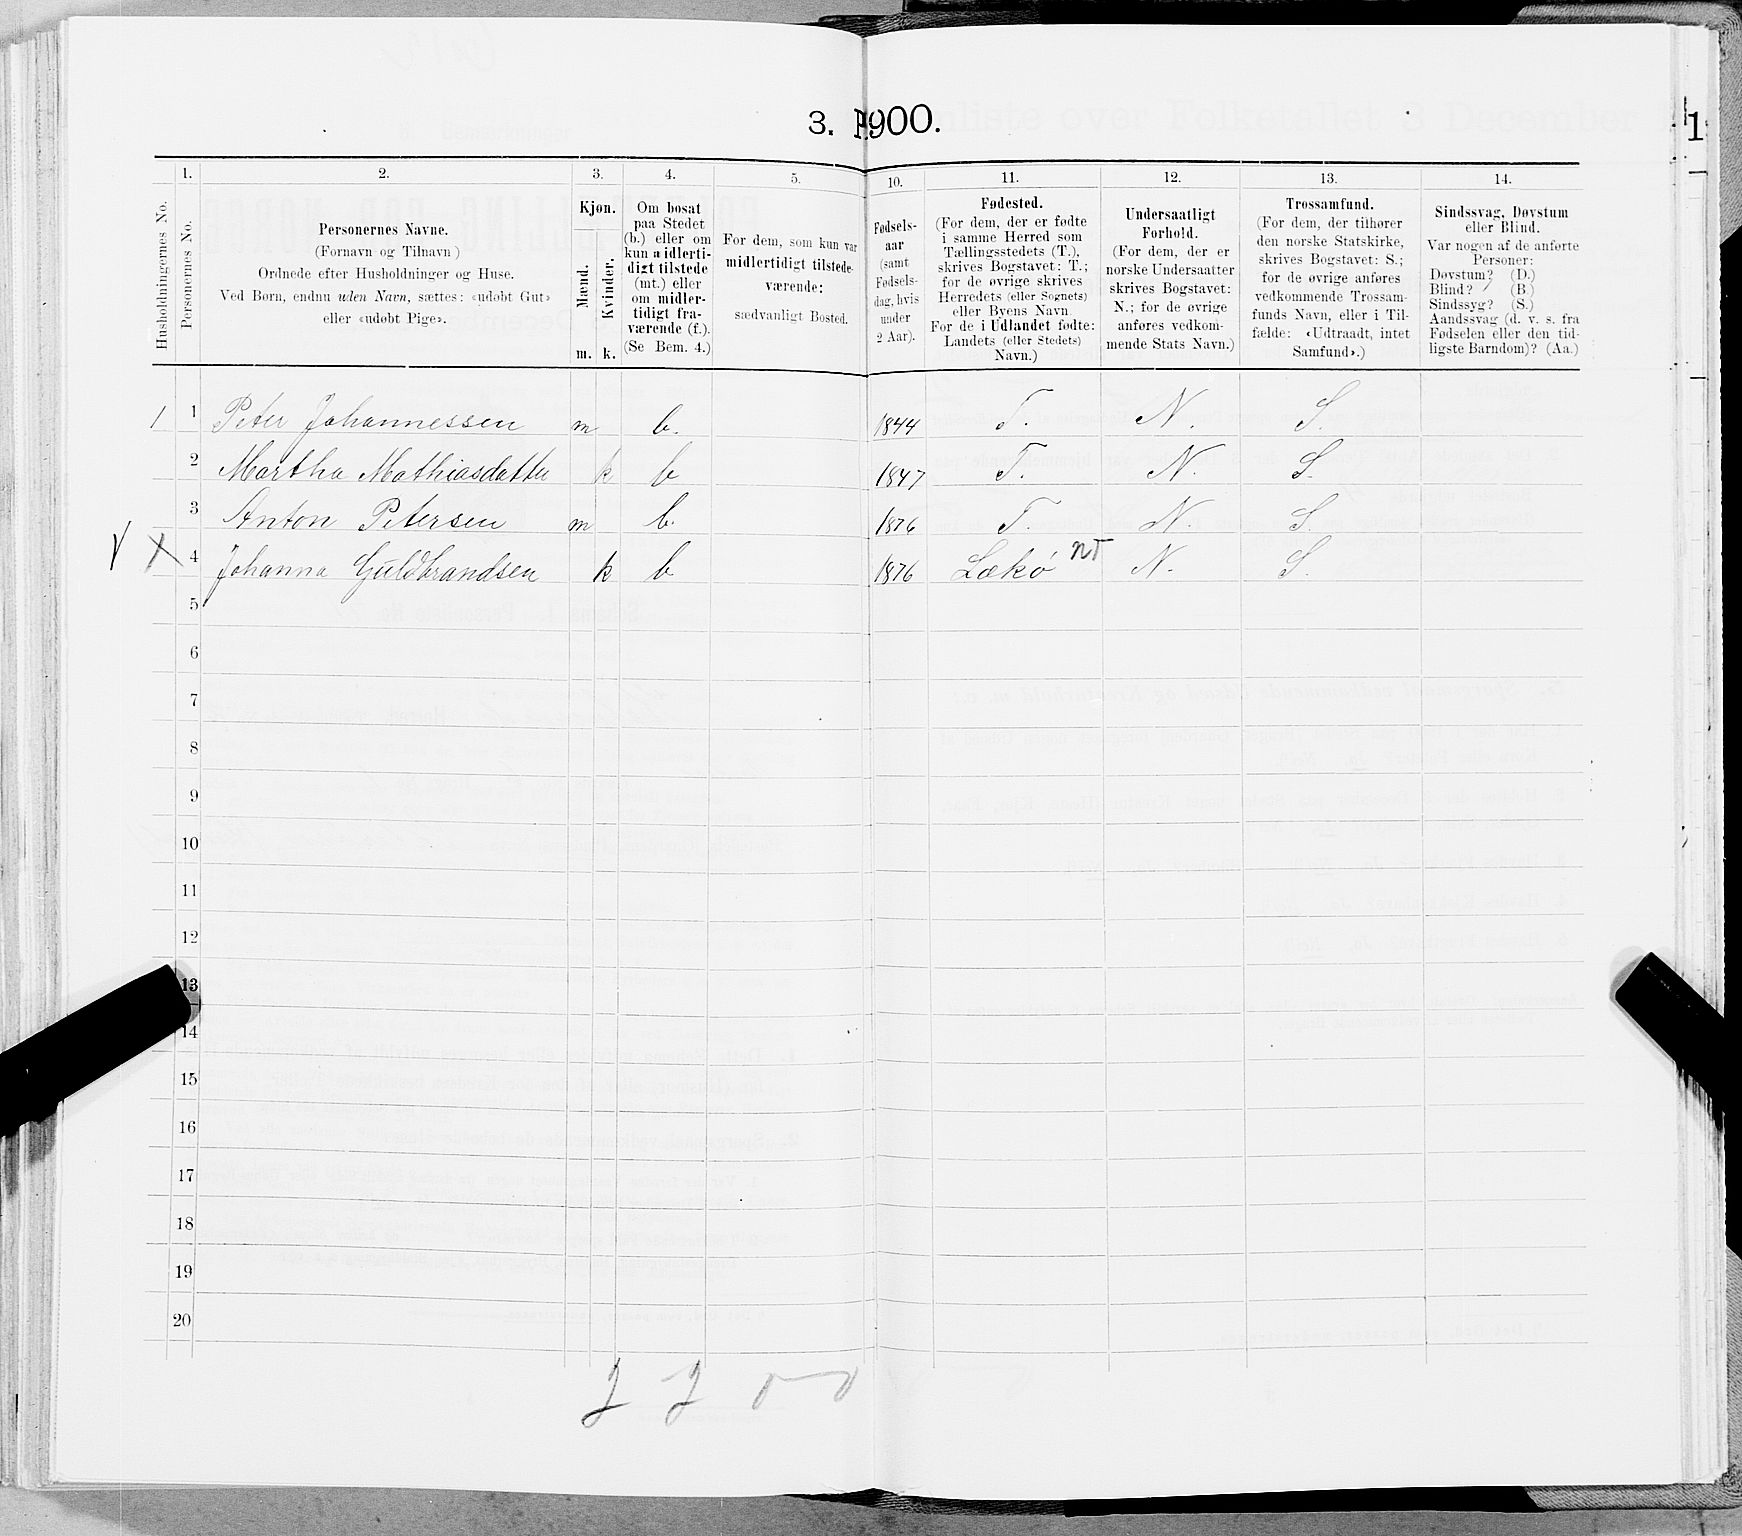 3. P
1900.
1
1.
2.
3.
4.
5.
10.
11.
12.
13.
14.
Husholdningernes No.
Personernes No.
Personernes Navne.
(Fornavn og Tilnavn)
Ordnede efter Husholdninger og Huse.
Ved Børn, endnu uden Navn, sættes: «udøbt Gut»
eller «udøbt Pige».
Kjøn.
Mænd.
Kvinder.
m. k.
Om bosat
paa Stedet
(b.) eller om
kun midlerti-
digt tilstede
(mt.) eller
om midler-
tidigt fra-
værende (f.).
(Se Bem. 4.)
For dem, som kun var
midlertidigt tilstede-
værende:
sædvanligt Bosted.
Fødsels-
aar
(samt
Fødsels-
dag, hvis
under
2 Aar).
Fødested.
(For dem, der er fødte
i samme Herred som
Tællingsstedets (T.),
skrives Bogstavet: T.;
for de øvrige skrives
Herredets (eller Sognets)
eller Byens Navn.
For de i Udlandet fødte:
Landets (eller Stedets)
Navn.)
Undersaatligt
Forhold.
(For dem, der er
norske Undersaatter
skrives Bogstavet:
N.; for de øvrige
anføres vedkom-
mende Stats Navn.)
Trossamfund.
(For dem, der tilhører
den norske Statskirke,
skrives Bogstavet: S.;
for de øvrige anføres
vedkommende Trossam-
funds Navn, eller i Til-
fælde: «Udtraadt, intet
Samfund».)
Sindssvag, Døvstum
eller Blind.
Var nogen af de anførte
Personer:
Døvstum? (D.)
Blind? (B.)
Sindssyg? (S.)
Aandssvag (d. v. s. fra
Fødselen eller den tid-
ligste Barndom)? (Aa.)
1 1 Peter Johannessen m b. 1844 T. N. S.
2 Martha Mathiasdatter k b 1847 T. N. S.
3 Anton Petersen m b. 1876 T. N. S.
4 Johanna Guldbrandsen k b 1876 Lekø NT N. S.
5
6
7
8
9
10
11
12
13
14
15
16
17
18
19
20
2 2